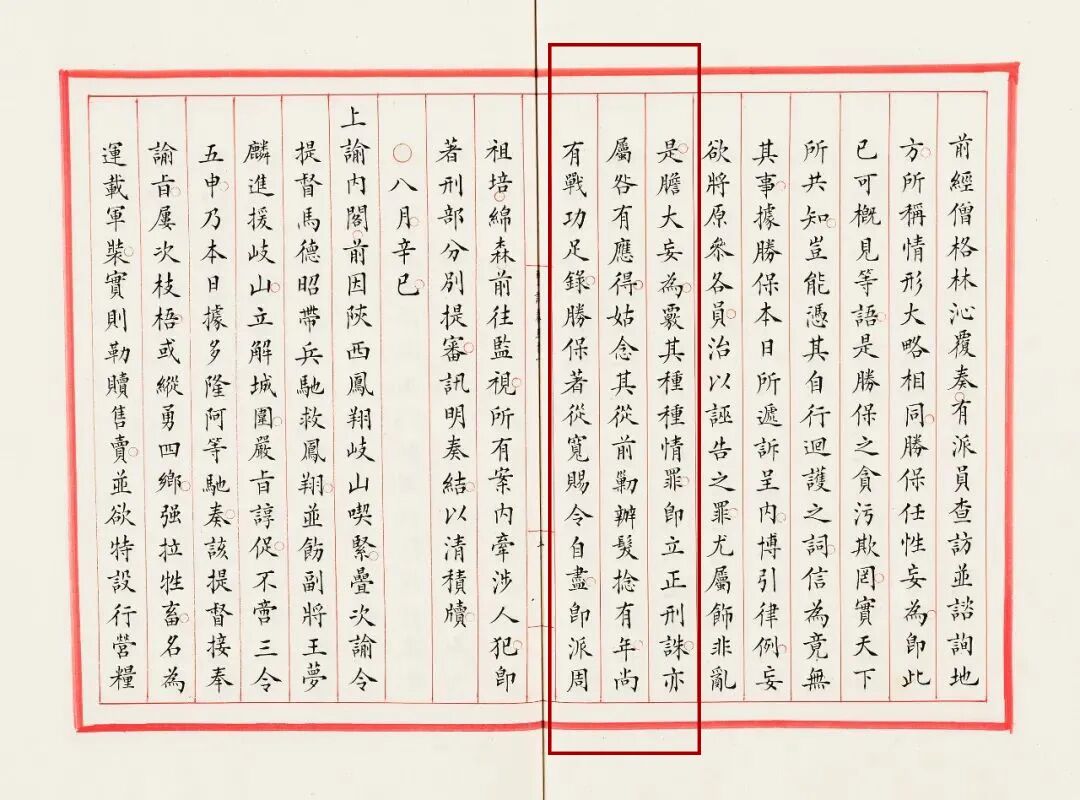 前經僧格林沁覆奏有派員查訪並諮詢地
方所稱情形大略相同勝保任性妄為即此
已可概見等語是勝保之貪污欺罔實天下
所共知豈能憑其自行迴護之詞信為竟無
其事據勝保本日所遞訴呈內博引律例妄
欲將原叅各員治以誣告之罪尤屬飾非亂
是膽大妄為覈其種種情罪即立正刑誅亦
屬咎有應得姑念其從前勦辦髮捻有年尚
有戰功足錄勝保著從寬賜令自盡即派周
祖培綿森前往監視所有案內牽涉人犯即
著刑部分別提審訊明奏結以清積牘
○八月辛巳
上諭內閣前因陝西鳳翔岐山喫緊疊次諭令
提督馬德昭帶兵馳救鳳翔並飭副將王夢
麟進援岐山立解城圍嚴旨諄促不啻三令
五申乃本日據多隆阿等馳奏該提督接奉
諭旨屢次枝梧或縱勇四鄉强拉牲畜名為
運載軍裝實則勒贖售賣並欲特設行營糧